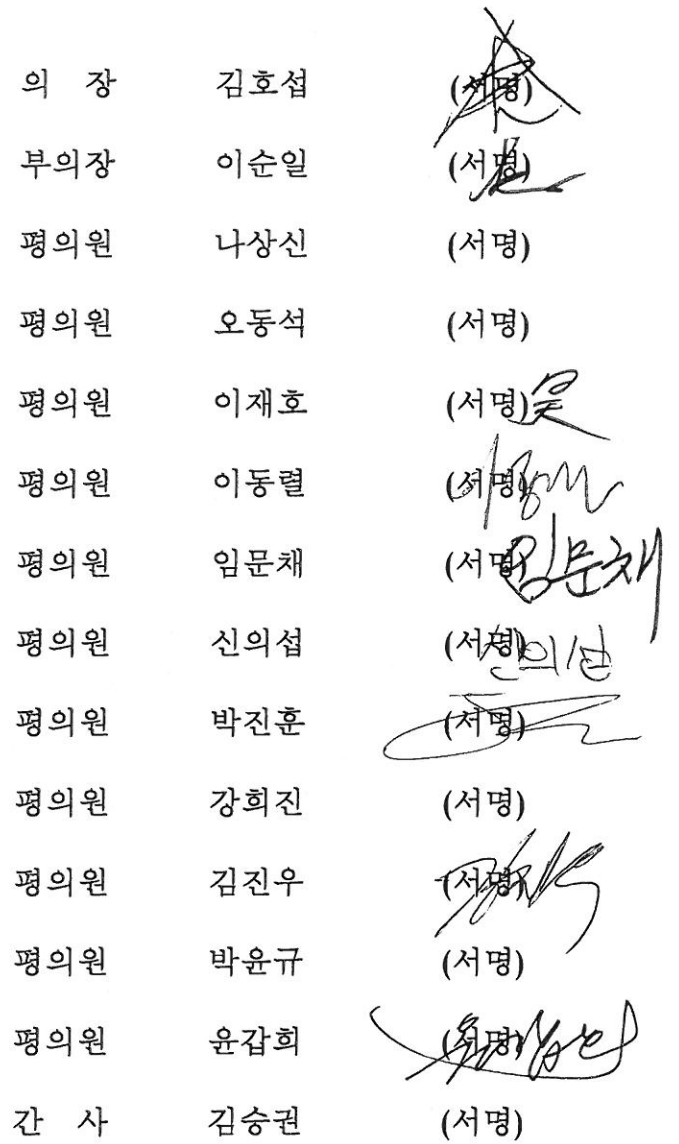 의 장 김호섭 (서명)
부의장 이순일 (서명)
평의원 나상신 (서명)
평의원 오동석 (서명)
평의원 이재호 (서명)
평의원 이동렬 (서명)
평의원 임문채 (서명) 임문채
평의원 신의섭 (서명) 신의섭
평의원 박진훈 (서명)
평의원 강희진 (서명)
평의원 김진우 (서명)
평의원 박윤규 (서명)
평의원 윤갑희 (서명)
간 사 김승권 (서명)